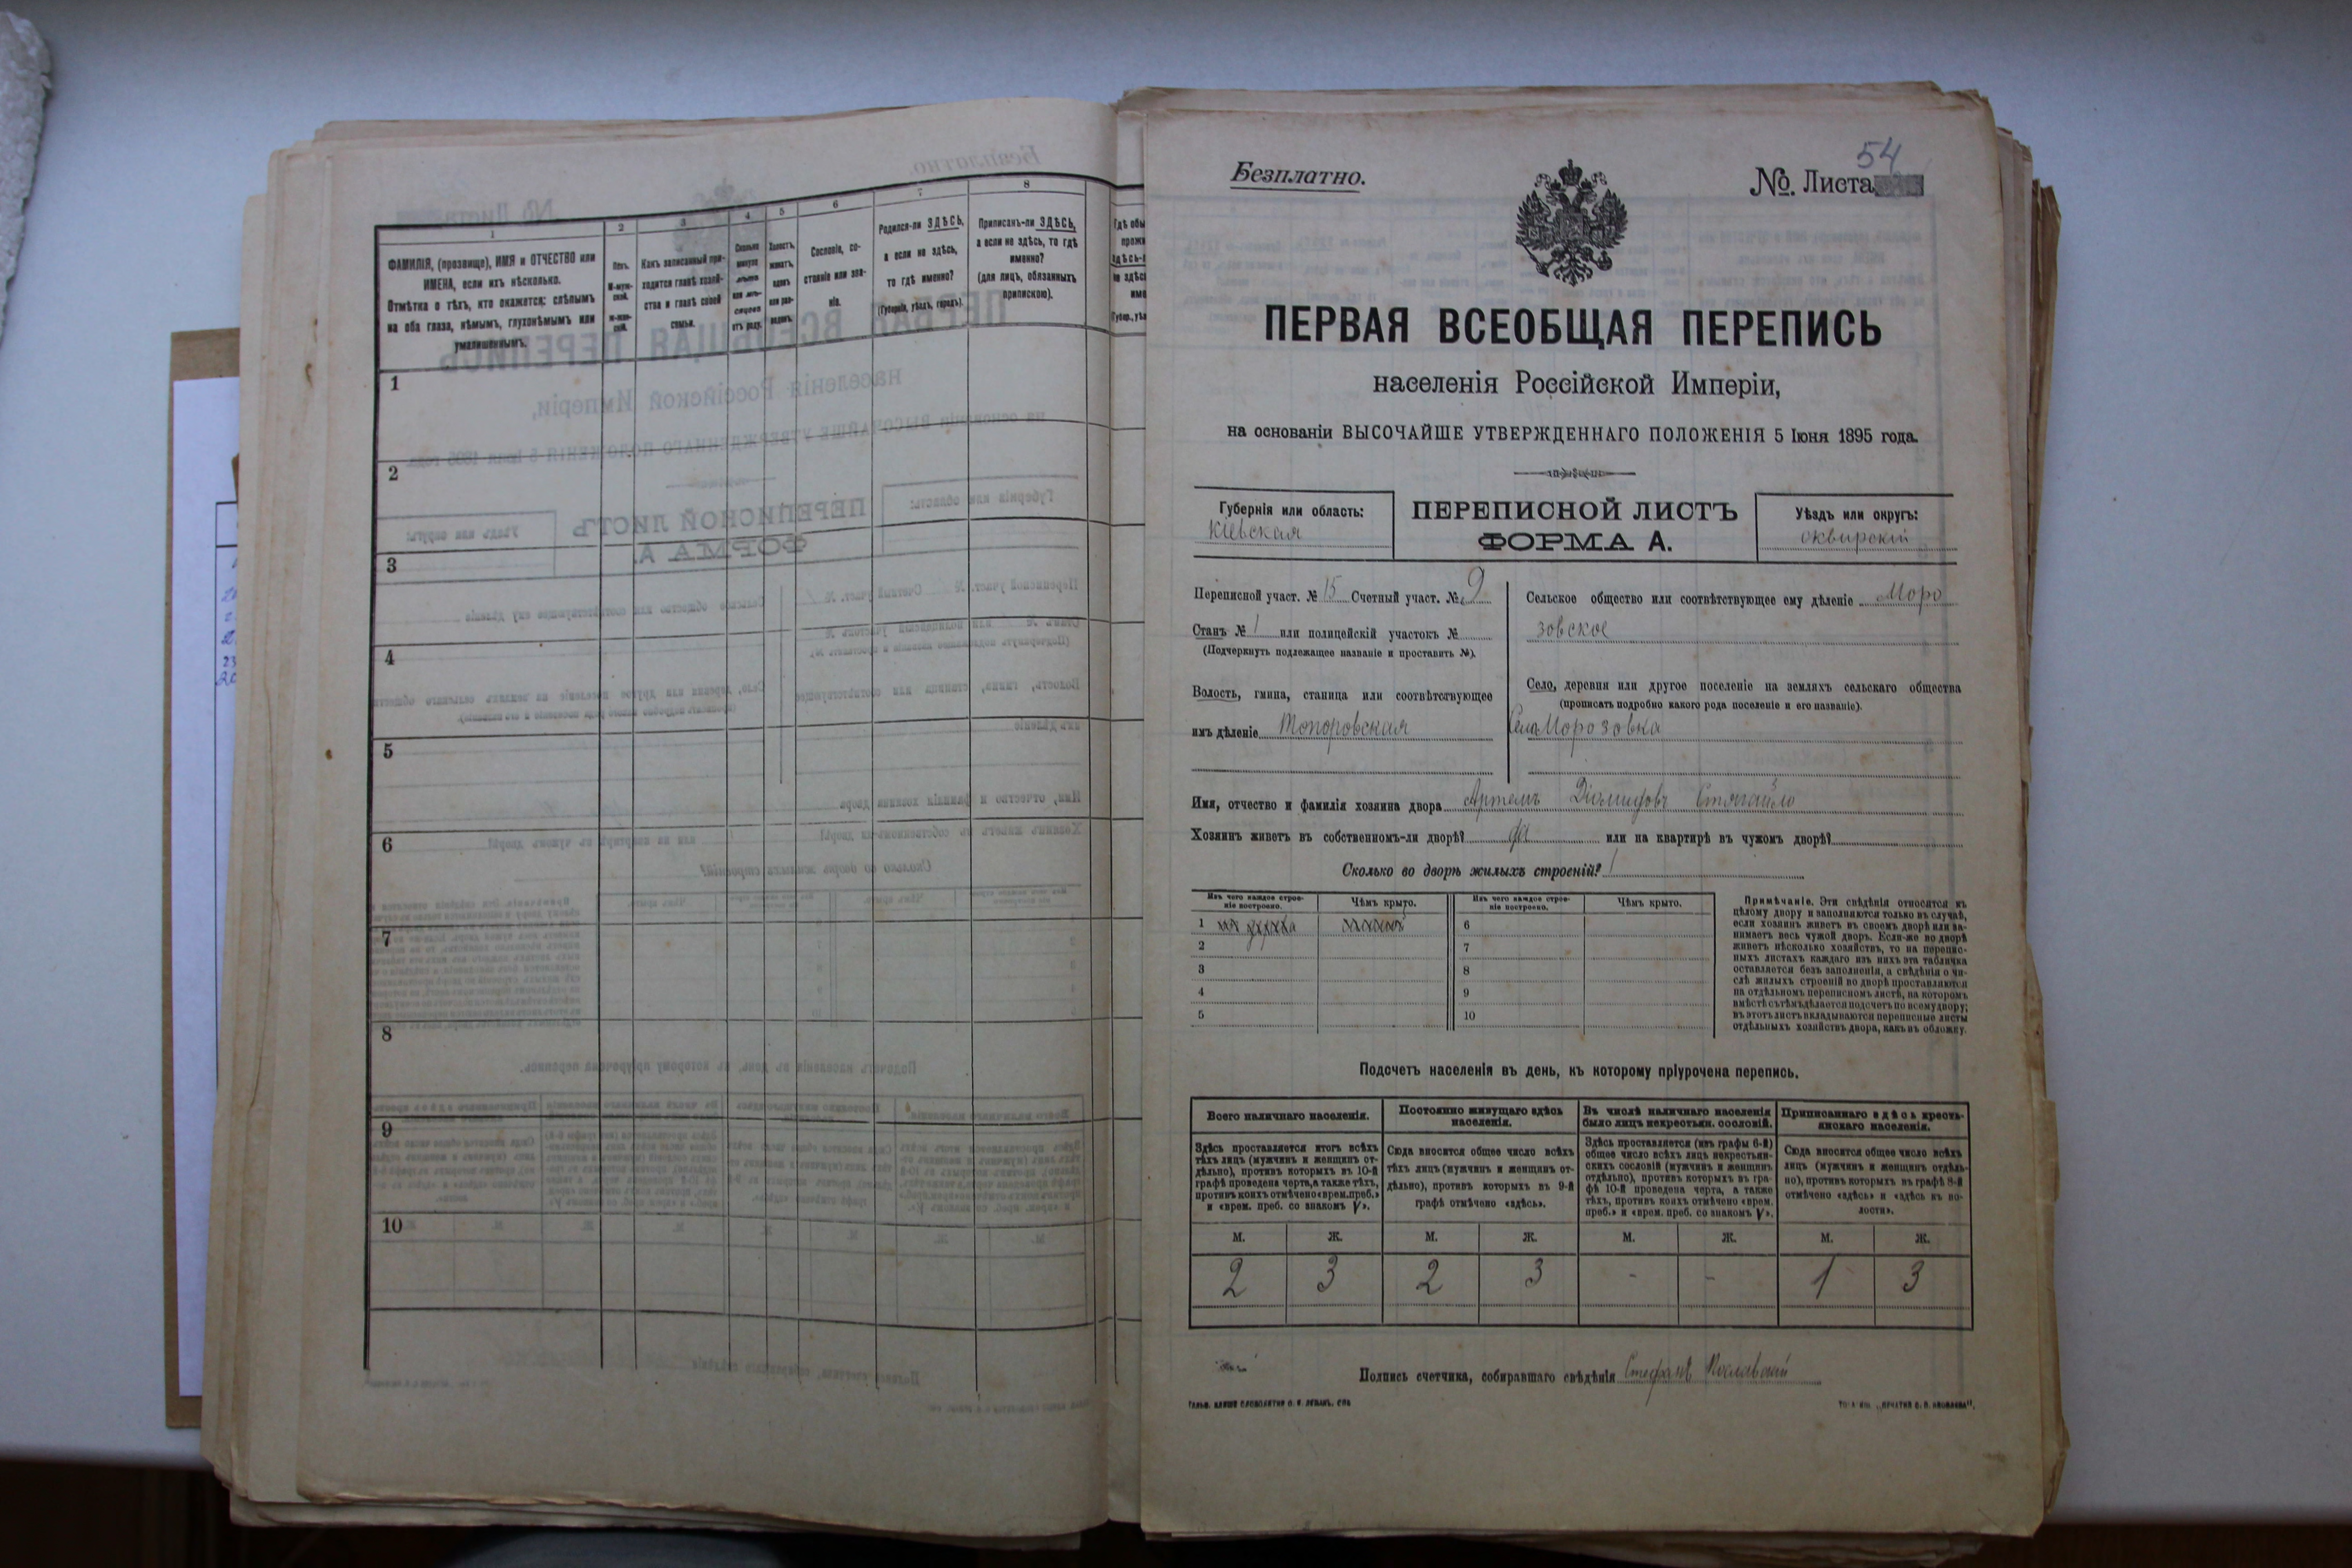 1
2
3
4
5
6
7
8
ФАМИЛІЯ, (прозвище), ИМЯ и ОТЧЕСТВО или
ИМЕНА, если ихъ нѣсколько.
Отмѣтка о тѣхъ, кто окажется: слѣпымъ
на оба глаза, нѣмымъ, глухонѣмымъ или
умалишеннымъ.
Полъ.
М-муж-
ской.
Ж-жен-
скій.
Какъ записанный при-
ходится главѣ хозяй-
ства и главѣ своей
семьи.
Сколько
минуло
лѣтъ
или мѣ-
сяцевъ
отъ роду.
Холостъ,
женатъ,
вдовъ
или раз-
веденъ.
Сословіе, со-
стояніе или зва-
ніе.
Родился-ли ЗДѢСЬ,
а если не здѣсь,
то гдѣ именно?
(Губернія, уѣздъ, городъ).
Приписанъ-ли ЗДѢСЬ,
а если не здѣсь, то гдѣ
именно?
(для лицъ, обязанныхъ
припискою).
1
2
3
4
5
6
7
8
9
10
Безплатно.
№ Листа
54
ПЕРВАЯ ВСЕОБЩАЯ ПЕРЕПИСЬ
населенія Россійской Имперіи,
на основаніи ВЫСОЧАЙШЕ УТВЕРЖДЕННАГО ПОЛОЖЕНІЯ 5 Іюня 1895 года.
Губернія или область:
Кіевская
ПЕРЕПИСНОЙ ЛИСТЪ
ФОРМА А.
Уѣздъ или округъ:
Сквирскій
Переписной участ. № 15 Счетный участ. № 9
Станъ № 1 или полицейскій участокъ №
(Подчеркнуть подлежащее названіе и проставить №).
Волость, гмина, станица или соотвѣтствующее
имъ дѣленіе Топоровская
Сельское общество или соотвѣтствующее ему дѣленіе Моро
зовское
Село, деревня или другое поселеніе на земляхъ сельскаго общества
(прописать подробно какого рода поселеніе и его названіе).
Село Морозовка
Имя, отчество и фамилія хозяина двора Артемъ Діомидовъ Стягайло
Хозяинъ живетъ въ собственномъ-ли дворѣ? да или на квартирѣ въ чужомъ дворѣ?
Сколько во дворѣ жилыхъ строеній? 1
Изъ чего каждое строе-
ніе построено.
Чѣмъ крыто.
Изъ чего каждое строе-
ніе построено.
Чѣмъ крыто.
1
2
3
4
5
6
7
8
9
10
Примѣчаніе. Эти свѣдѣнія относятся къ
цѣлому двору и заполняются только въ случаѣ,
если хозяинъ живетъ въ своемъ дворѣ или за-
нимаетъ весь чужой дворъ. Если-же во дворѣ
живетъ нѣсколько хозяйствъ, то на перепис-
ныхъ листахъ каждаго изъ нихъ эта табличка
оставляется безъ заполненія, а свѣдѣнія о чи-
слѣ жилыхъ строеній во дворѣ проставляются
на отдѣльномъ переписномъ листѣ, на которомъ
вмѣстѣ съ тѣмъ дѣлается подсчетъ по всему двору;
въ этотъ листъ вкладываются переписные листы
отдѣльныхъ хозяйствъ двора, какъ въ обложку.
Подсчетъ населенія въ день, къ которому пріурочена перепись.
Всего наличнаго населенія.
Здѣсь проставляется итогъ всѣхъ
тѣхъ лицъ (мужчинъ и женщинъ от-
дѣльно), противъ которыхъ въ 10-й
графѣ проведена черта, а также тѣхъ,
противъ коихъ отмѣчено «врем. преб.»
и «врем. преб. со знакомъ V».
Постоянно живущаго здѣсь
населенія.
Сюда вносится общее число всѣхъ
тѣхъ лицъ (мужчинъ и женщинъ от-
дѣльно), противъ которыхъ въ 9-й
графѣ отмѣчено «здѣсь».
Въ числѣ наличнаго населенія
было лицъ некрестьян. сословій.
Здѣсь проставляется (изъ графы 6-й)
общее число всѣхъ лицъ некрестьян-
скихъ сословій (мужчинъ и женщинъ
отдѣльно), противъ которыхъ въ гра-
фѣ 10-й проведена черта, а также
тѣхъ, противъ коихъ отмѣчено «врем.
преб.» и «врем. преб. со знакомъ V».
Приписаннаго здѣсь кресть-
янскаго населенія.
Сюда вносится общее число всѣхъ
лицъ (мужчинъ и женщинъ отдѣль-
но), противъ которыхъ въ графѣ 8-й
отмѣчено «здѣсь» и «здѣсь къ во-
лости».
М. Ж. М. Ж. М. Ж. М. Ж.
2 3 2 3 - - 1 3
Подпись счетчика, собиравшаго свѣдѣнія Стефанъ